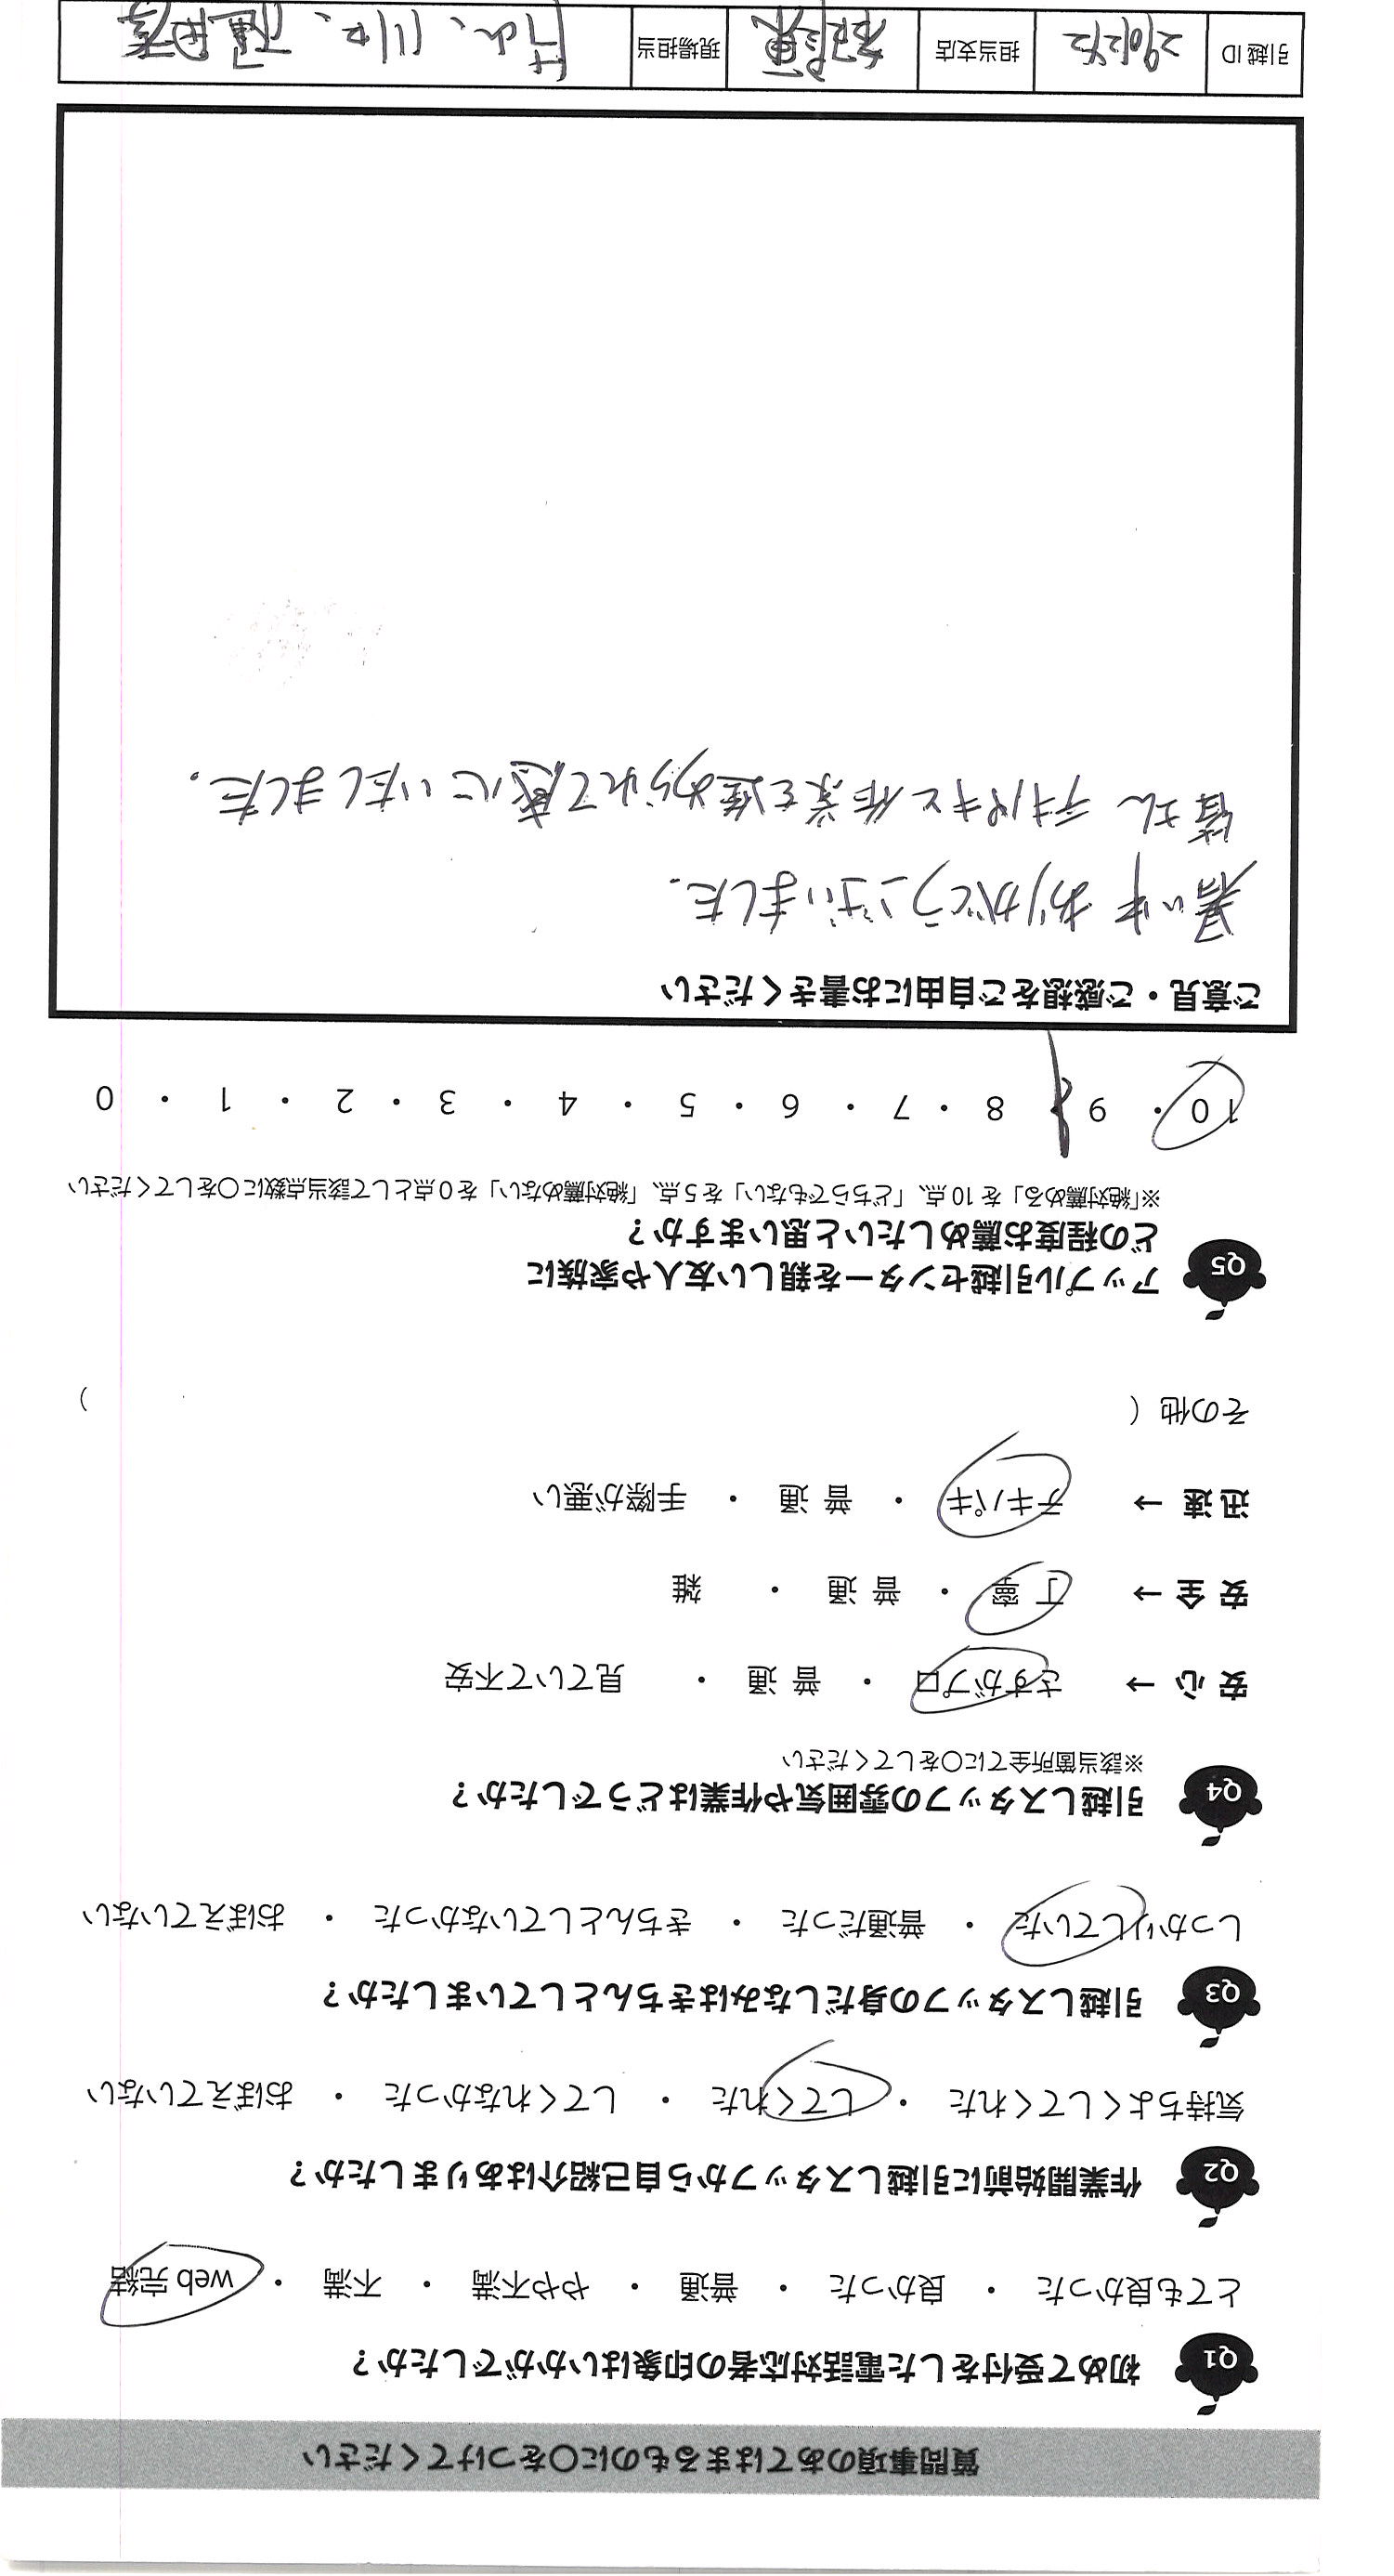 質問事項のあてはまるものに○をつけてください
Q1 初めて受付をした電話対応者の印象はいかがでしたか？
とても良かった ・ 良かった ・ 普通 ・ やや不満 ・ 不満 ・ web 完結
Q2 作業開始前に引越しスタッフから自己紹介はありましたか？
気持ちよくしてくれた ・ してくれた ・ してくれなかった ・ おぼえていない
Q3 引越しスタッフの身だしなみはきちんとしていましたか？
しっかりしていた ・ 普通だった ・ きちんとしていなかった ・ おぼえていない
Q4 引越しスタッフの雰囲気や作業はどうでしたか？
※該当箇所全てに○をしてください
安 心 → さすがプロ ・ 普 通 ・ 見ていて不安
安 全 → 丁 寧 ・ 普 通 ・ 雑
迅 速 → テキパキ ・ 普 通 ・ 手際が悪い
その他 （ ）
Q5 アップル引越センターを親しい友人や家族に
どの程度お薦めしたいと思いますか？
※「絶対薦める」を 10 点、「どちらでもない」を 5 点、「絶対薦めない」を 0 点として該当点数に○をしてください
10 ・ 9 ・ 8 ・ 7 ・ 6 ・ 5 ・ 4 ・ 3 ・ 2 ・ 1 ・ 0
ご意見・ご感想をご自由にお書きください
暑い中 ありがとうございました.
皆さん テキパキと作業を進められて感心いたしました.
引越 ID 担当支店 現場担当 川口、